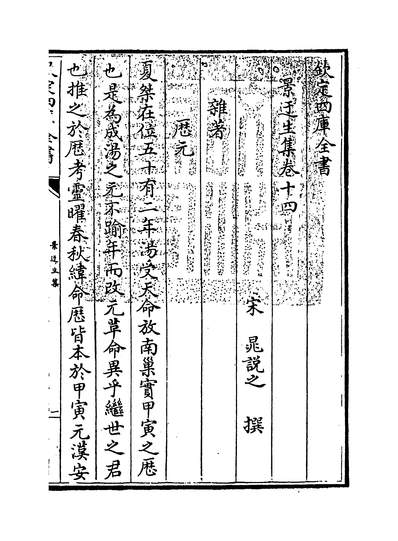 欽定四庫全書
景迂生集卷十四
宋 晁說之 撰
雜著
厯元
夏桀在位五十有二年湯受天命放南巢實甲寅之厯
也是為成湯之元不踰年而改元革命異乎繼世之君
也推之於厯考靈曜春秋緯命厯皆本於甲寅元漢安
景迂生集